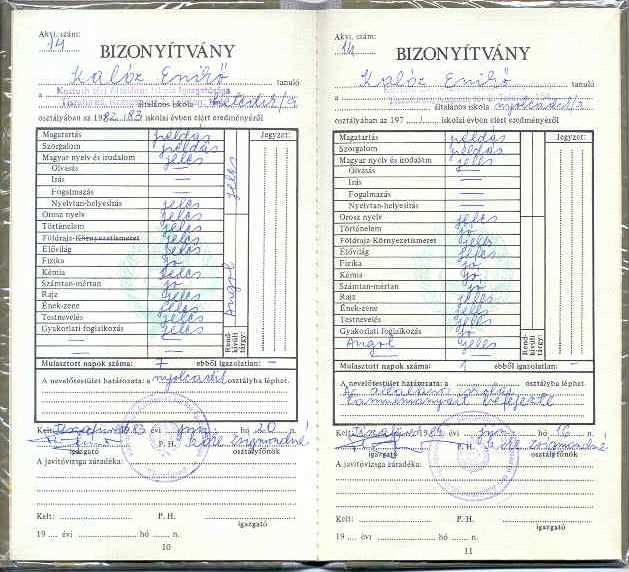 Akvi. szám:
14
BIZONYÍTVÁNY
Kalóz Enikő tanuló
a
általános iskola hetedik/a
osztályában az 1982/83 iskolai évben elért eredményéről
Jegyzet:
Magatartás példás
Szorgalom példás
Magyar nyelv és irodalom jeles
Olvasás —
Írás —
Fogalmazás —
Nyelvtan-helyesírás jeles
jeles
Orosz nyelv jeles
Történelem jeles
Földrajz-Környezetismeret jeles
Élővilág jeles
Fizika jó
Kémia jeles
Számtan-mértan jó
Rajz jeles
Ének-zene jeles
Testnevelés jeles
Gyakorlati foglalkozás jeles
— —
— —
Angol
Rendkívüli tárgy:
Mulasztott napok száma: 7 ebből igazolatlan: —
A nevelőtestület határozata: a nyolcadik osztályba léphet.
Kelt: Tiszafüred 1983 évi jún. hó 20 n.
P. H.
igazgató
osztályfőnök
A javítóvizsga záradéka:
Kelt: P. H.
igazgató
19 évi hó n.
10
Akvi. szám:
14
BIZONYÍTVÁNY
Kalóz Enikő tanuló
a
általános iskola nyolcadik/a
osztályában az 197 / iskolai évben elért eredményéről
Jegyzet:
Magatartás példás
Szorgalom példás
Magyar nyelv és irodalom jeles
Olvasás —
Írás —
Fogalmazás —
Nyelvtan-helyesírás —
Orosz nyelv jeles
Történelem jó
Földrajz-Környezetismeret jeles
Élővilág jeles
Fizika jó
Kémia jó
Számtan-mértan jó
Rajz jeles
Ének-zene jeles
Testnevelés jeles
Gyakorlati foglalkozás jó
Angol jeles
Rendkívüli tárgy:
Mulasztott napok száma: 1 ebből igazolatlan: —
A nevelőtestület határozata: a osztályba léphet.
az általános iskolai
tanulmányait befejezte
Kelt: Tiszafüred 1984 évi jún. hó 16 n.
P. H.
igazgató
osztályfőnök
A javítóvizsga záradéka:
Kelt: P. H.
igazgató
19 évi hó n.
11